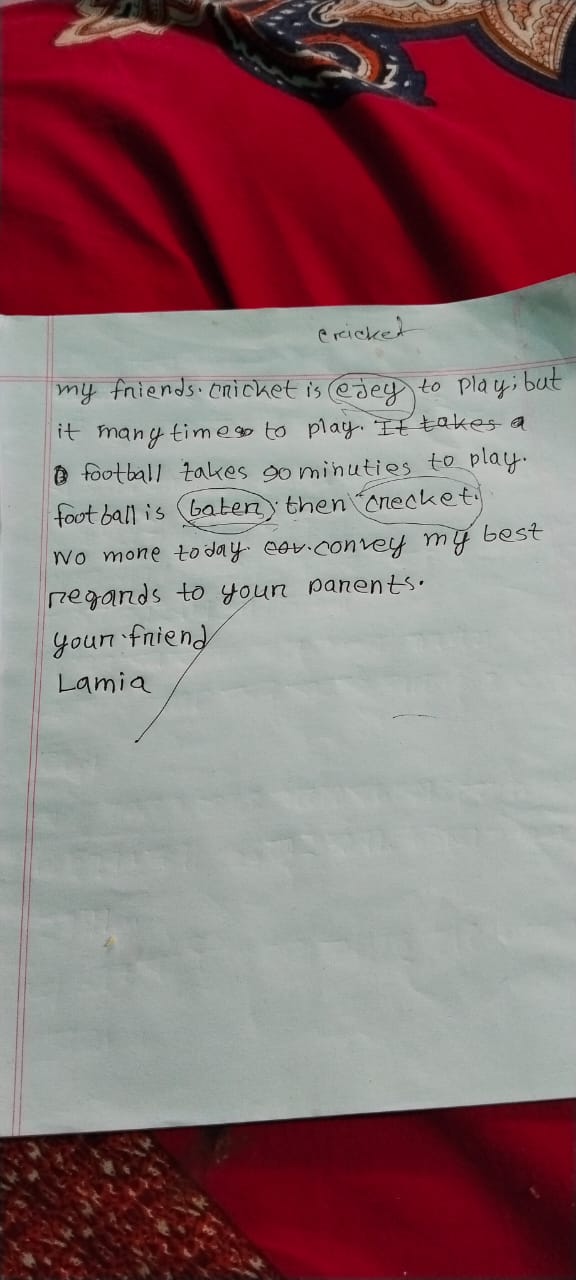 cricket
my friends. cricket is ejey to play; but
it many times to play. It takes a
football takes 90 minuties to play.
football is baten; then "crecket.
No more today. cov. convey my best
regards to your parents.
your friend
Lamia